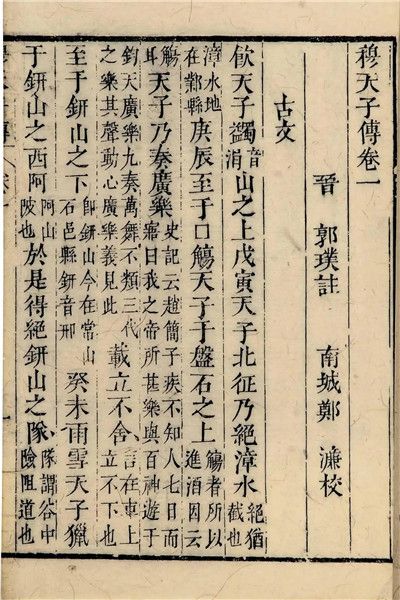 穆天子傳卷一
晉 郭璞註 南城鄭 濂校
古文
飲天子蠲音涓山之上戊寅天子北征乃絕漳水絕猶截也
漳水地在鄴縣庚辰至于□觴天子于盤石之上觴者所以進酒因云
觴耳天子乃奏廣樂史記云趙簡子疾不知人七日而寤曰我之帝所甚樂與百神遊于
鈞天廣樂九奏萬舞不類三代之樂其聲動心廣樂義見此載立不舍言在車上立不下也
至于鈃山之下即鈃山今在常山石邑縣鈃音邢癸未雨雪天子獵
于鈃山之西阿阿山陂也於是得絕鈃山之隊隊謂谷中險阻道也